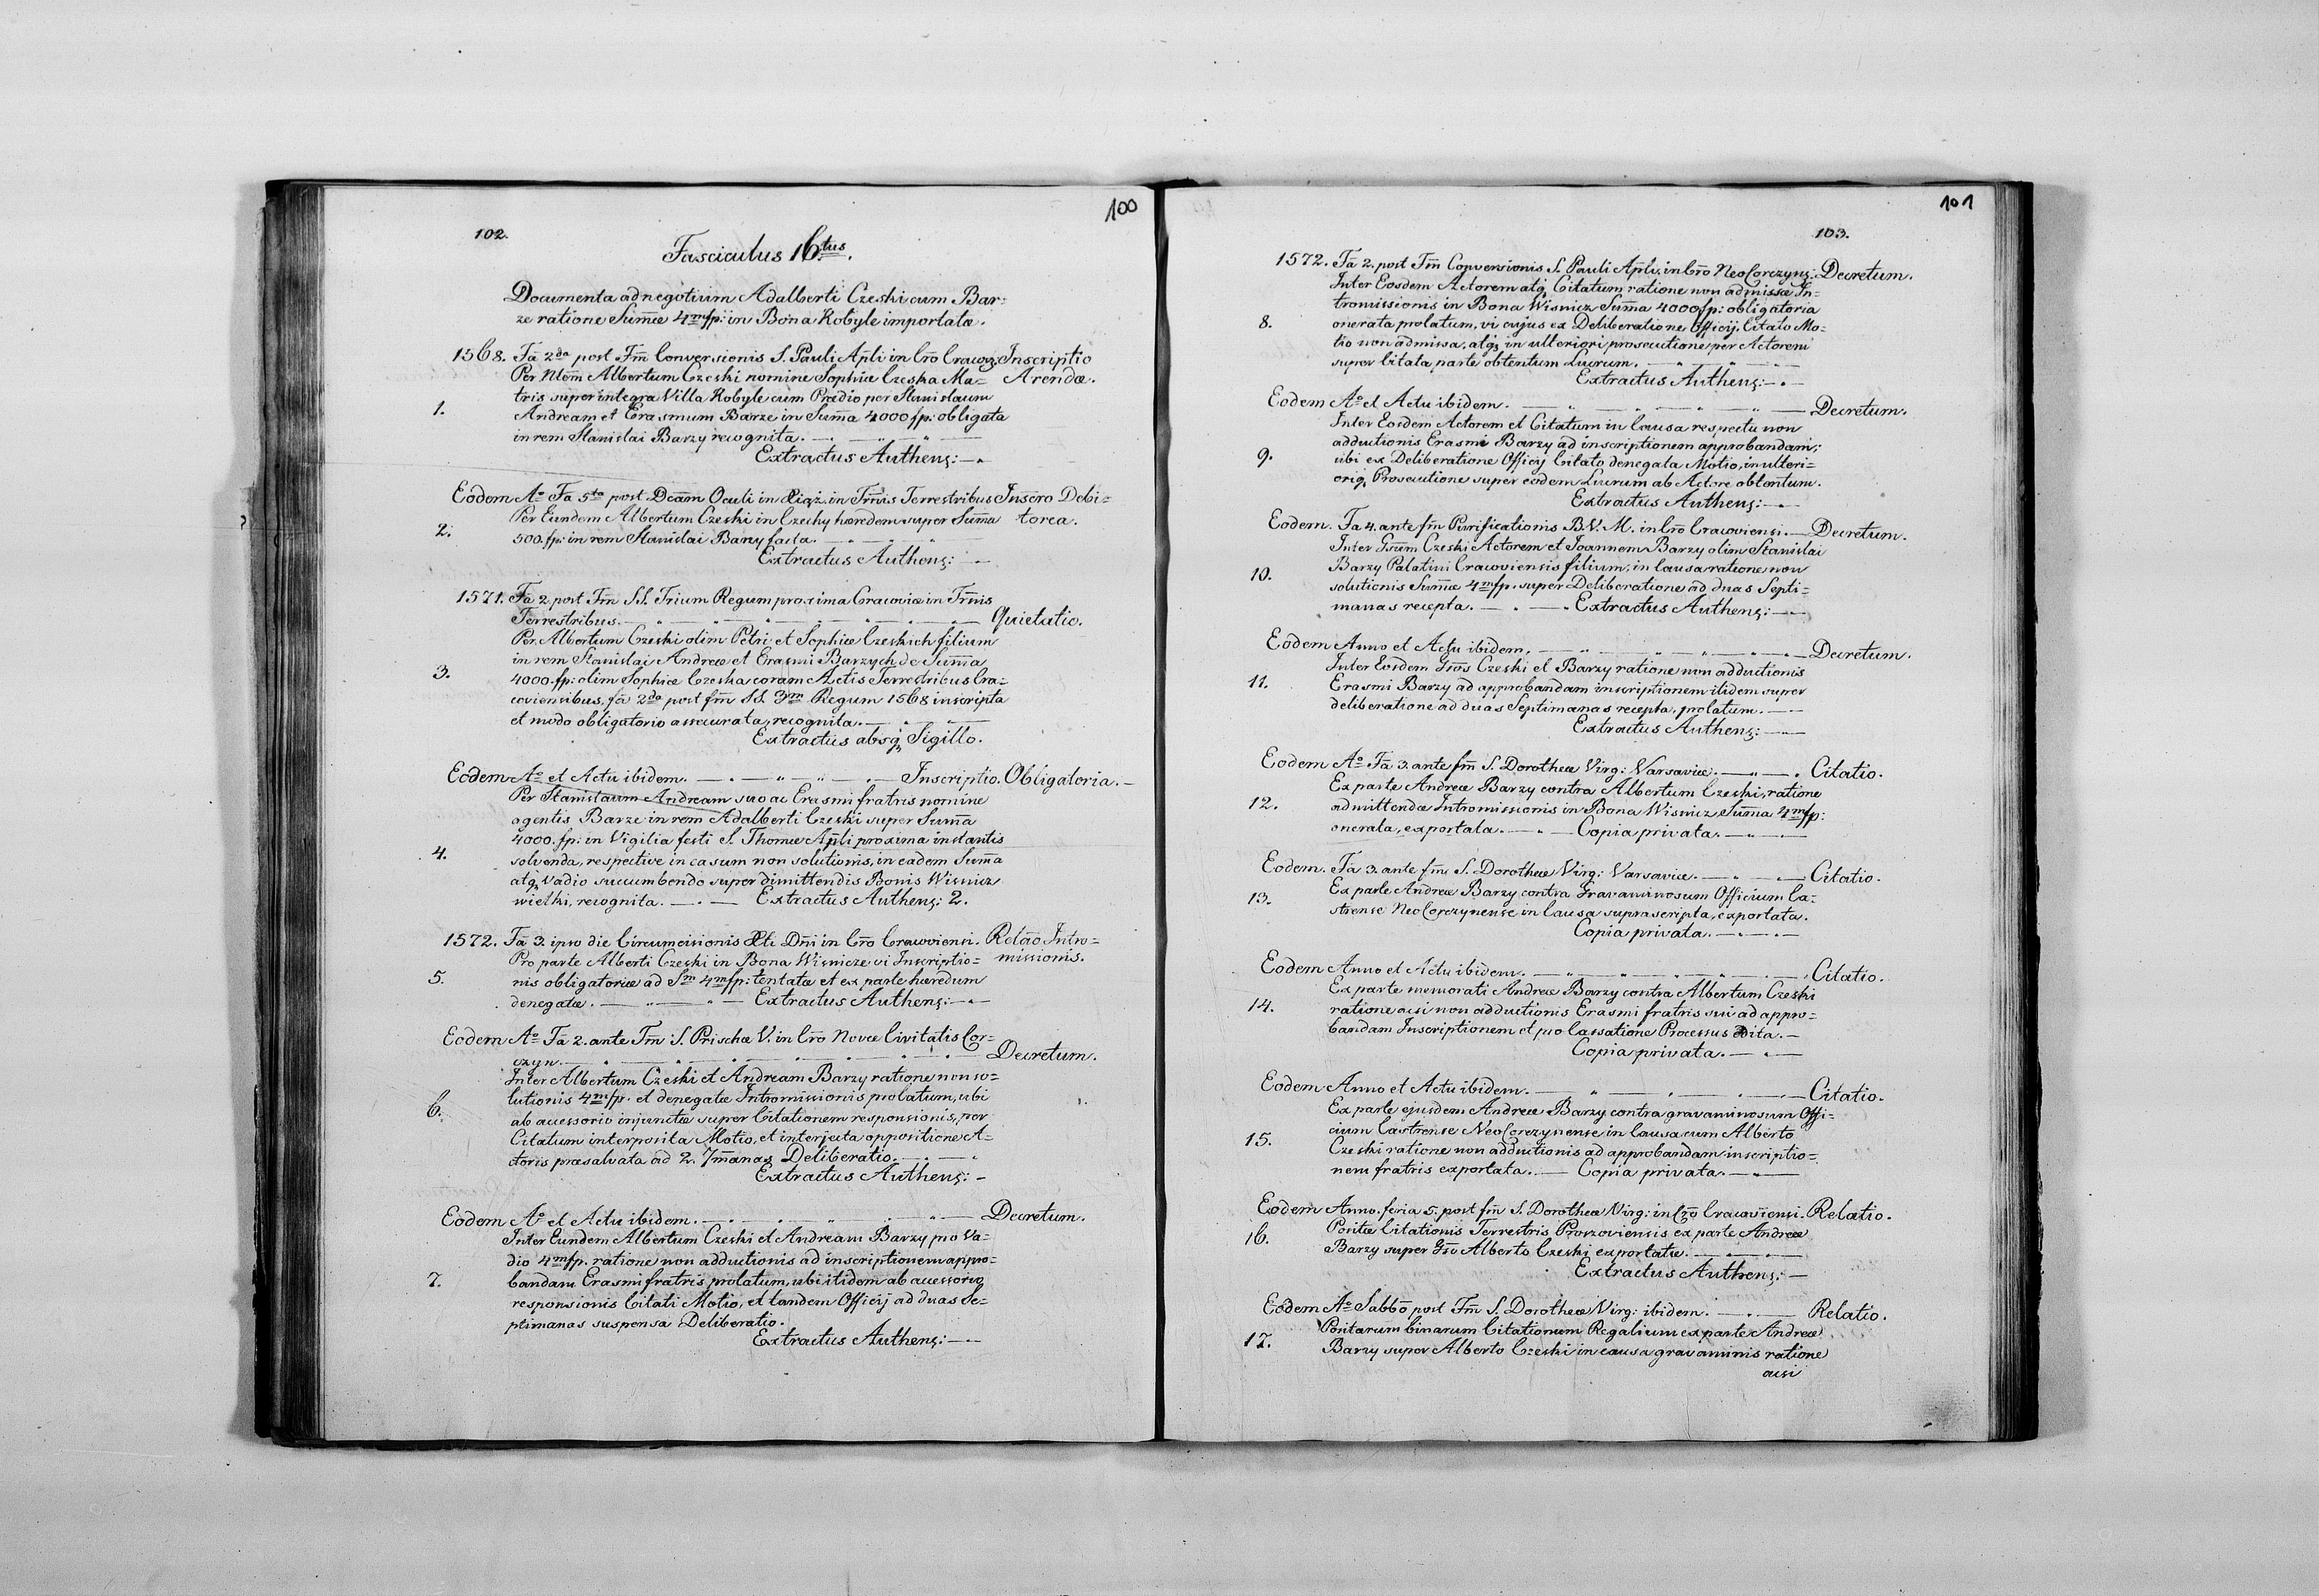 100
102.
Fasciculus 16tus.
Documenta ad negotium Adalberti Czeski cum Bar=
ze ratione Sum̃æ 4m fp: in Bona Kobyle importatæ.
1568. Fã 2da post Fm̃ Conversionis S. Pauli Apłi in Crõ Cracov: Inscriptio
Per Nłem Albertum Czeski nomine Sophiæ Czeska Ma= Arendæ.
tris super integra Villa Kobyle cum Prædio per Stanislaum
1. Andream et Erasmum Barze in Sum̃a 4000 fp: obligata
in rem Stanislai Barzy recognita.
Extractus Authens:
Eodem Ao Fã 5ta post Dcam Oculi in Xiąż. in Trm̃is Terrestribus Inscro Debi=
Per Eundem Albertum Czeski in Czechy hæredem super Sum̃a torea.
2. 500 fp: in rem Stanislai Barzy facta.
Extractus Authens:
1571. Fã 2 post Fm̃ SS. Trium Regum proxima Cracoviæ in Trm̃is
Terrestribus. Quietatio.
Per Albertum Czeski olim Petri et Sophiæ Czeskich filium
in rem Stanislai Andreæ et Erasmi Barzych de Sum̃a
3. 4000 fp: olim Sophiæ Czeska coram Actis Terrestribus Cra=
coviensibus, fã 2da post fm̃ SS. 3m Regum 1568 inscripta
et modo obligatorio assecurata, recognita.
Extractus absq Sigillo.
Eodem Ao et Actu ibidem. Inscriptio Obligatoria.
Per Stanislaum Andream suo ac Erasmi fratris nomine
agentis Barze in rem Adalberti Czeski super Sum̃a
4000 fp: in Vigilia festi S. Thomæ Apłi proxima instantis
4. solvenda, respective in casum non solutionis, in eadem Sum̃a
atq Vadio succumbendo super dimittendis Bonis Wisnicz
wielki, recognita. Extractus Authens: 2.
1572. Fã 3. ipso die Circumcisionis Xti Dñi in Crõ Cracoviensi. Relão Intro=
Pro parte Alberti Czeski in Bona Wisnicze vi Inscriptio= missionis.
5. nis obligatoriæ ad Sm 4m fp: tentatæ et ex parte hæredum
denegatæ. Extractus Authens:
Eodem Ao Fã 2. ante Fm̃ S. Priscæ V. in Crõ Novæ Civitatis Cor=
czyn. Decretum.
Inter Albertum Czeski et Andream Barzy ratione non so=
lutionis 4m fp. et denegatæ Intromissionis prolatum, ubi
6. ab accessorio injunctæ super Citationem responsionis, per
Citatum interposita Motio, et interjecta oppositione A=
ctoris præsalvata ad 2. 7m̃anas Deliberatio.
Extractus Authens:
Eodem Ao et Actu ibidem. Decretum.
Inter Eundem Albertum Czeski et Andream Barzy pro Va=
dio 4m fp. ratione non adductionis ad inscriptionem appro=
7. bandam Erasmi fratris prolatum, ubi itidem ab accessorio
responsionis Citati Motio, et tandem Officij ad duas Se=
ptimanas suspensa Deliberatio.
Extractus Authens:
101
103.
1572. Fã 2. post Fm̃ Conversionis S. Pauli Apłi. in Crõ NeoCorczyns: Decretum.
Inter Eosdem Actorem atq Citatum ratione non admissæ In=
tromissionis in Bona Wisnicz Sum̃a 4000 fp: obligatoria
8. onerata prolatum, vi cujus ex Deliberatione Officij, Citato Mo=
tio non admissa, atq in ulteriori prosecutione per Actorem
super Citata parte obtentum Lucrum.
Extractus Authens:
Eodem Ao et Actu ibidem. Decretum.
Inter Eosdem Actorem et Citatum in Causa respectu non
adductionis Erasmi Barzy ad inscriptionem approbandam;
9. ubi ex Deliberatione Officij Citato denegata Motio, in ulteri=
oriq Prosecutione super eodem Lucrum ab Actore obtentum.
Extractus Authens:
Eodem. Fa 4. ante fm̃ Purificationis B.V.M. in Crõ Cracoviensi. Decretum.
Inter Gsum Czeski Actorem et Joannem Barzy olim Stanislai
10. Barzy Palatini Cracoviensis filium, in Causa ratione non
solutionis Sum̃æ 4m fp. super Deliberatione ad duas Septi=
manas recepta. Extractus Authens:
Eodem Anno et Actu ibidem. Decretum.
Inter Eosdem Gsos Czeski et Barzy ratione non adductionis
11. Erasmi Barzy ad approbandam inscriptionem itidem super
deliberatione ad duas Septimanas recepta, prolatum.
Extractus Authens:
Eodem Ao Fã 3. ante fm̃ S. Dorotheæ Virg: Varsaviæ. Citatio.
Ex parte Andreæ Barzy contra Albertum Czeski, ratione
12. admittendæ Intromissionis in Bona Wisnicz, Sum̃a 4m fp:
onerata, exportata. Copia privata.
Eodem. Fã 3. ante fm̃ S. Dorotheæ Virg: Varsaviæ. Citatio.
Ex parte Andreæ Barzy contra Gravaminosum Officium Ca=
13. strense NeoCorczynense in Causa suprascripta, exportata.
Copia privata.
Eodem Anno et Actu ibidem. Citatio.
Ex parte memorati Andreæ Barzy contra Albertum Czeski
14. ratione acsi non adductionis Erasmi fratris sui ad appro=
bandam Inscriptionem et pro Cassatione Processus Edita.
Copia privata.
Eodem Anno et Actu ibidem. Citatio.
Ex parte ejusdem Andreæ Barzy contra gravaminosum Offi=
cium Castrense NeoCorczynense in Causa cum Alberto
15. Czeski ratione non adductionis ad approbandam inscriptio=
nem fratris exportata. Copia privata.
Eodem Anno, feria 5. post fm̃ S. Dorotheæ Virg: in Crõ Cracoviensi. Relatio.
16. Positæ Citationis Terrestris Proszoviensis ex parte Andreæ
Barzy super Gso Alberto Czeski exportatæ.
Extractus Authens:
Eodem Ao Sabbõ post Fm̃ S. Dorotheæ Virg: ibidem. Relatio.
Positarum binarum Citationum Regalium ex parte Andreæ
17. Barzy super Alberto Czeski in causa gravaminis ratione
acsi